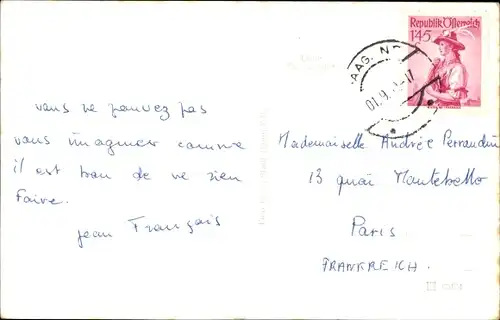 Republik Österreich
1'45
AAG. N
01.9.
17
vous ne pouvez pas
vous imaginer comme
il est bon de ne rien
faire.
Jean François
Mademoiselle Andrée Perraudin
13 quai Montebello
Paris
FRANKREICH.